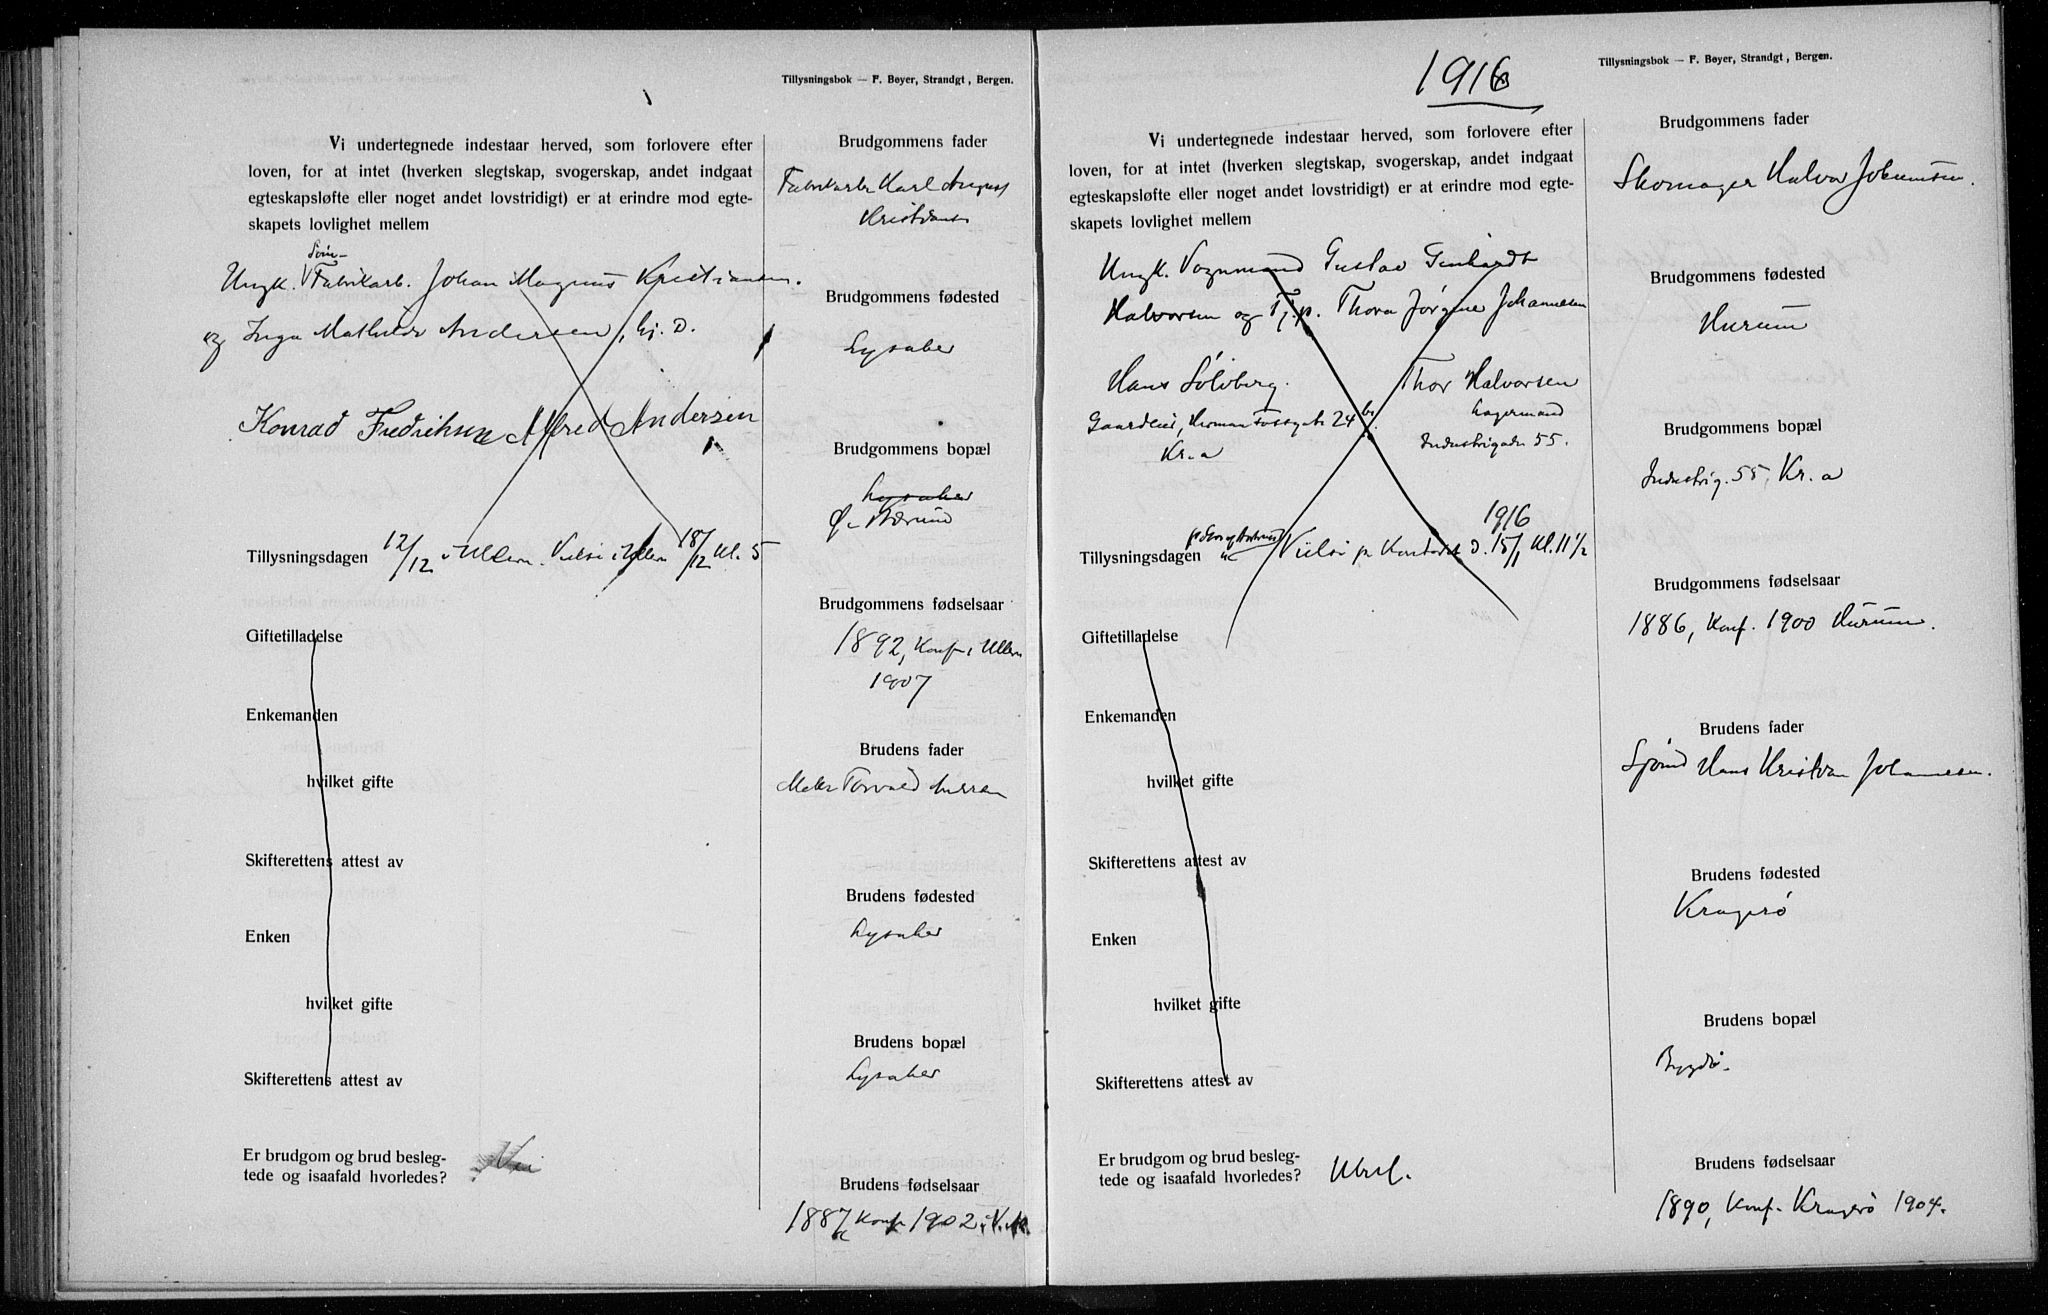 Tillysningsbok — F. Beyer, Strandgt, Bergen.
Vi undertegnede indestaar herved, som forlovere efter
loven, for at intet (hverken slegtskap, svogerskap, andet indgaat
egteskapsløfte eller noget andet lovstridigt) er at erindre mod egte-
skapets lovlighet mellem
Ungk. Fabrikarb. Johan Magnus Kristiansen.
og Inga Mathilde Andersen, hj. D.
Konrad Fredriksen Alfred Andersen
Tillysningsdagen 12/12 i Ullern. Vielse i Ullern 18/12 Kl. 5
Giftetilladelse
Enkemanden
hvilket gifte
Skifterettens attest av
Enken
hvilket gifte
Skifterettens attest av
Er brudgom og brud besleg-
tede og isaafald hvorledes? Nei
Brudgommens fader
Fabrikarb. Karl August
Kristians
Brudgommens fødested
Lysaker
Brudgommens bopæl
Lysaker
Ø. Bærum
Brudgommens fødselsaar
1892, Konf. i Ullern
1907
Brudens fader
Torvald
Brudens fødested
Lysaker
Brudens bopæl
Lysaker
Brudens fødselsaar
1887 Konf. 1902 i V. A.
1916
Tillysningsbok — F. Beyer, Strandgt, Bergen.
Vi undertegnede indestaar herved, som forlovere efter
loven, for at intet (hverken slegtskap, svogerskap, andet indgaat
egteskapsløfte eller noget andet lovstridigt) er at erindre mod egte-
skapets lovlighet mellem
Ungk. Vognmand Gustav
Halvorsen og Tj.p. Thora Jørgine Johannesen
Hans Sølvberg. Thor Halvorsen
Gaardeier, Herman Fossgate 24 Lagermand
Kr.a Industrigaden 55.
1916
Tillysningsdagen Vielse pr Kontoret d. 15/1 Kl. 11 1/2
Giftetilladelse
Enkemanden
hvilket gifte
Skifterettens attest av
Enken
hvilket gifte
Skifterettens attest av
Er brudgom og brud besleg-
tede og isaafald hvorledes? Ubesl.
Brudgommens fader
Skomager Halvor Johannsen.
Brudgommens fødested
Hurum
Brudgommens bopæl
Industrig. 55, Kr.a
Brudgommens fødselsaar
1886, Konf. 1900 Hurum.
Brudens fader
Sjømd Hans Kristian Johannesen.
Brudens fødested
Kragerø
Brudens bopæl
Bygdø.
Brudens fødselsaar
1890, Konf. Kragerø 1904.